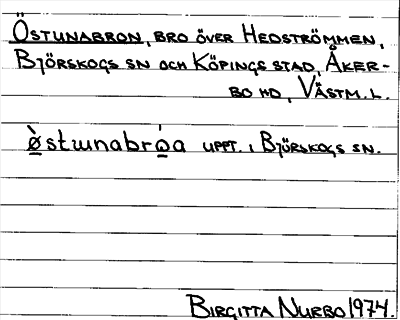 Östunabron, bro över Hedströmmen,
Björskogs sn och Köpings stad, Åker-
bo hd, Västm. l.
ø̀stɯnabro̱̍a uppt. i Björskogs sn.
Birgitta Nurbo 1974.